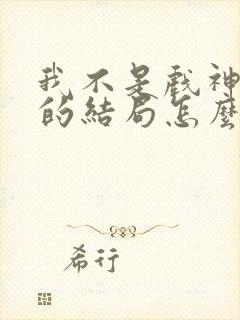 我不是戲神
的結局怎麼
希行